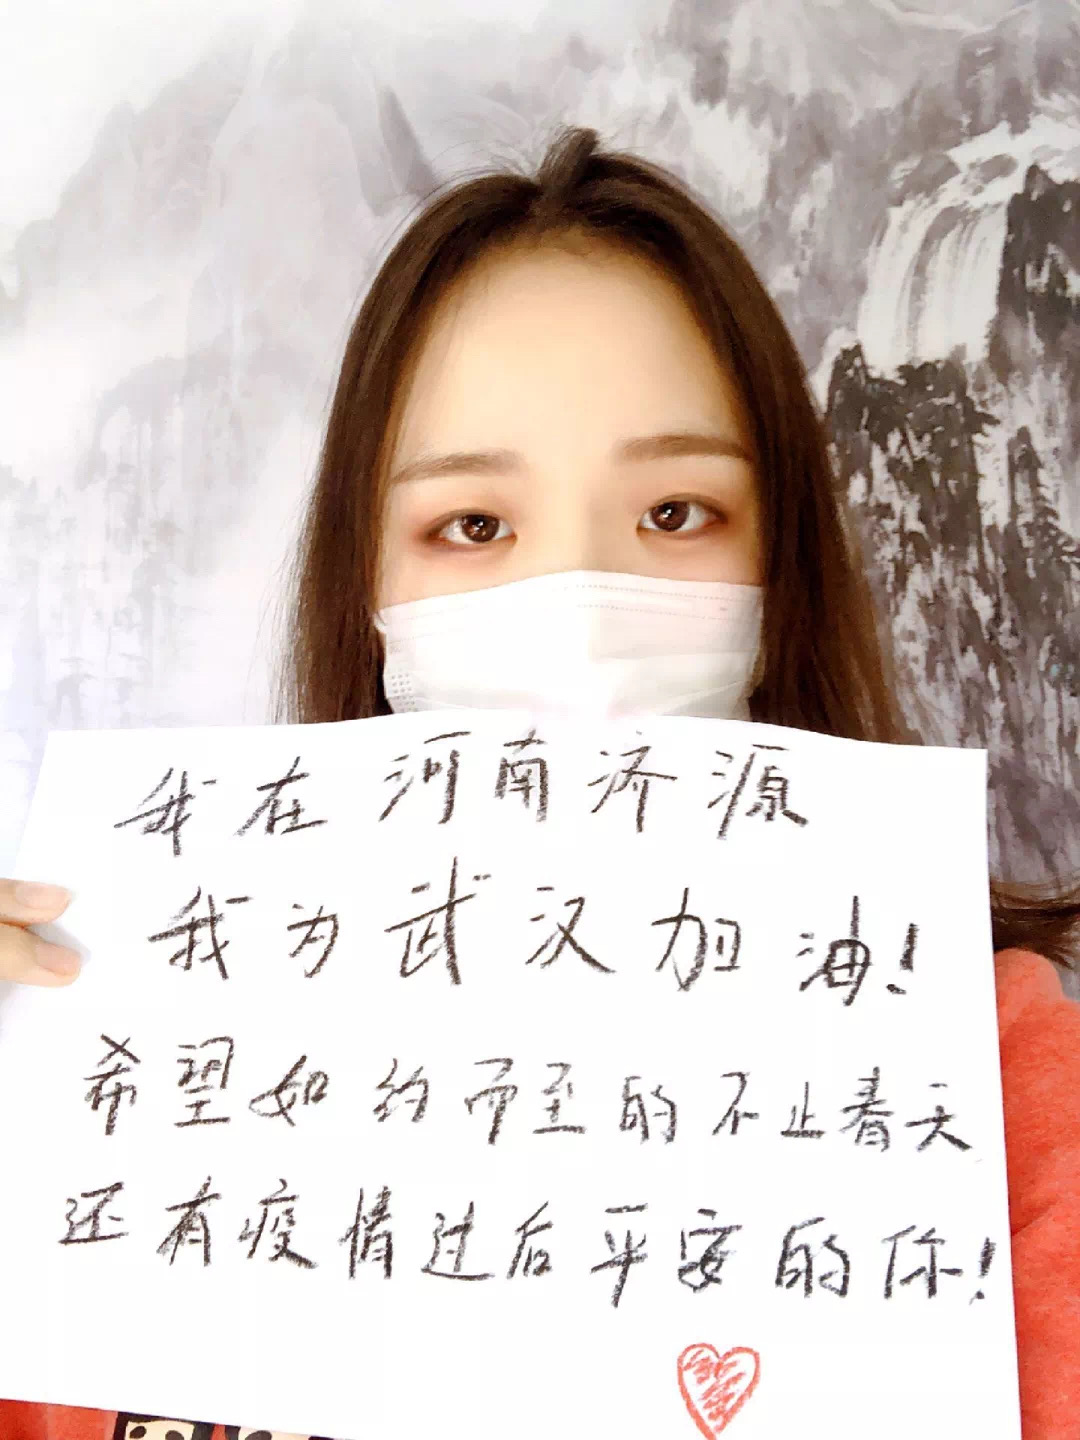 我在河南济源
我为武汉加油!
希望如约而至的不止春天
还有疫情过后平安的你!